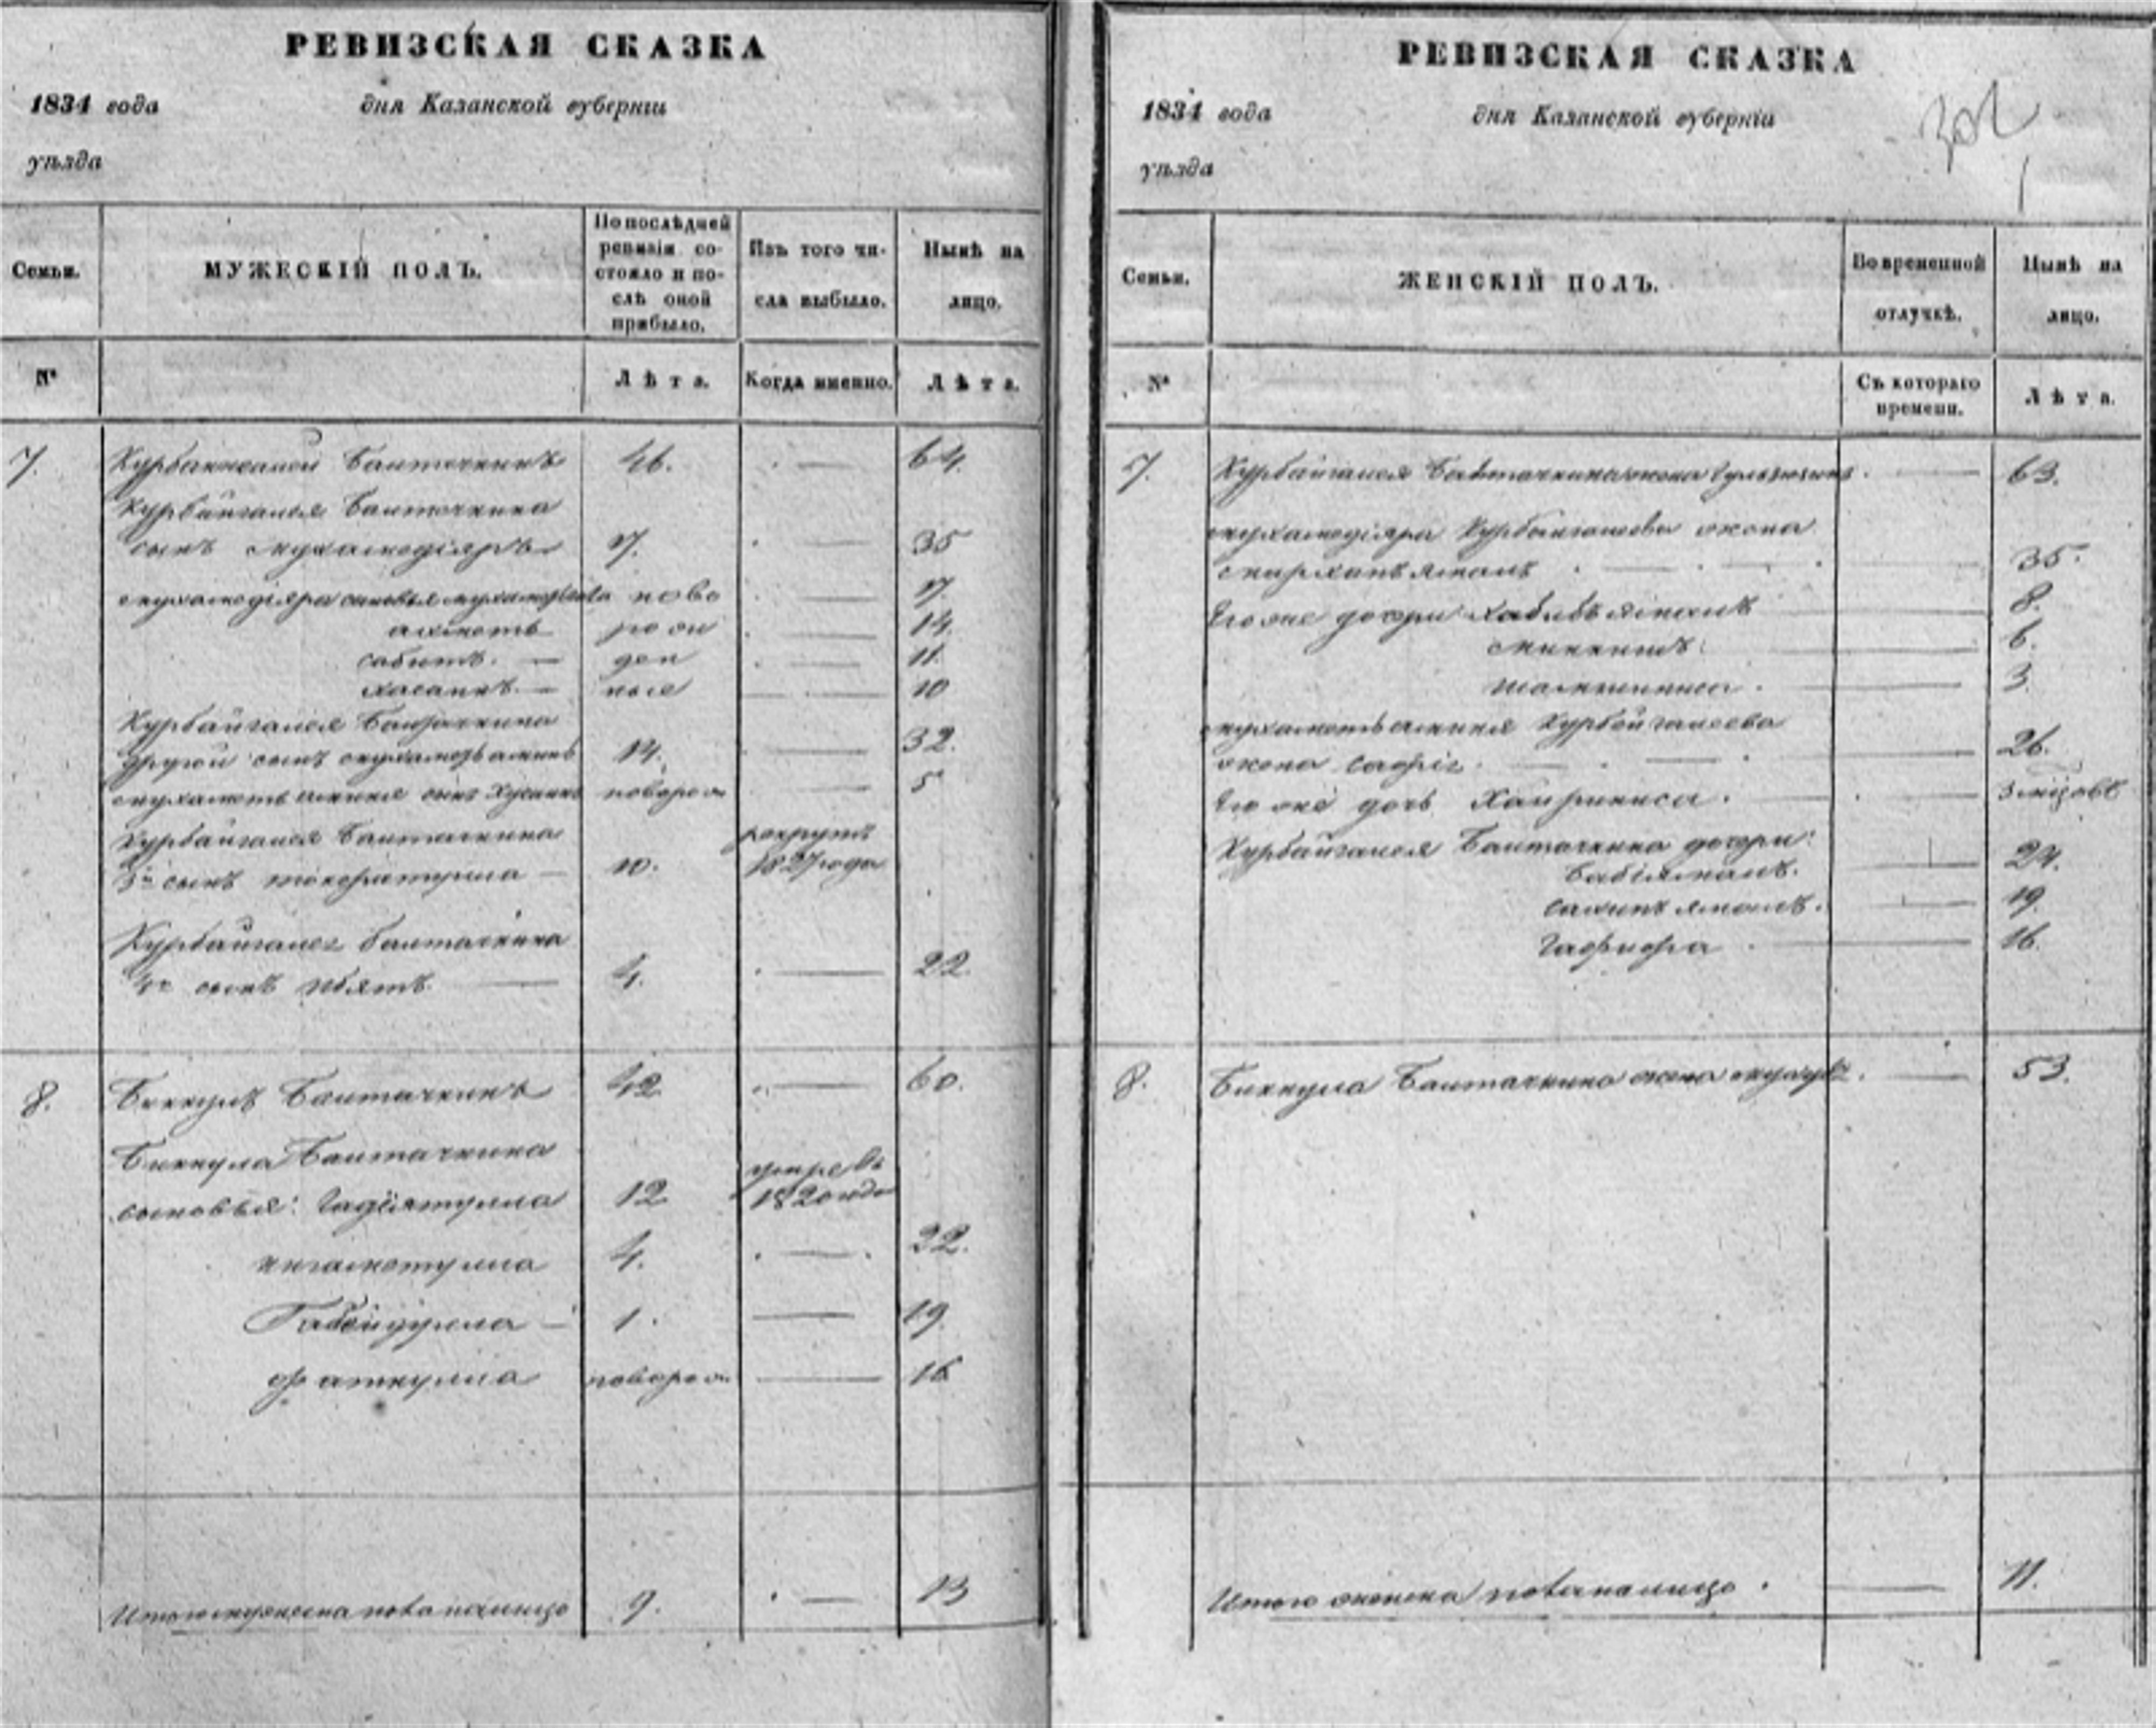 РЕВИЗСКАЯ СКАЗКА
1834 года дня Казанской губерніи
уѣзда
Семьи. МУЖЕСКІЙ ПОЛЪ. По послѣдней ревизіи состояло и послѣ оной прибыло. Изъ того числа выбыло. Нынѣ на лицо.
№ Лѣта. Когда именно. Лѣта.
7. Курбангалей Баитачкинъ 46. — 64.
Курбангалея Баитачкина
сынъ Мухамедіяръ 17. — 35
Мухамедіяра сыновья ново — 17.
ахметъ рож — 14.
сабитъ. — ден — 11.
хасанъ. — ные — 10
Курбайгалея Баитачкина
другой сынъ Мухаметъаминъ 14. — 32.
Мухаметъаминя сынъ Хусаинъ новорож — 5
Курбайгалея Баитачкина рекрутъ
3й сынъ — 10. 1827 года
Курбайгалея Баитачкина
4й сынъ — 4. — 22.
8. Биккулъ Баитачкинъ 42. — 60.
Биккула Баитачкина умре въ
сыновья: Гадіятулла 12 1820 годе
Нигаметулла 4. — 22.
Габейдулла — 1. — 19.
Фаткулла новорож — 16
Итого мужеска пола на лицо 9. — 13
РЕВИЗСКАЯ СКАЗКА
1834 года дня Казанской губерніи
уѣзда
Семьи. ЖЕНСКІЙ ПОЛЪ. Во временной отлучкѣ. Нынѣ на лицо.
№ Съ котораго времени. Лѣта.
7. Курбайгалея Баитачкина жена — 63.
Мухамедіяра Курбангалеева жена
— 35.
Его же дочери Хабибъямалъ — 8.
— 6.
— 3.
Мухаметъаминя Курбайгалеева
жена — 26.
Его же дочь Хаирниса. — 3 мѣсецовъ
Курбайгалея Баитачкина дочери:
Бабіямалъ. — 24.
Сахипъямалъ. — 19.
— 16.
8. Биккула Баитачкина жена — 53.
Итого женска пола на лицо. — 11.